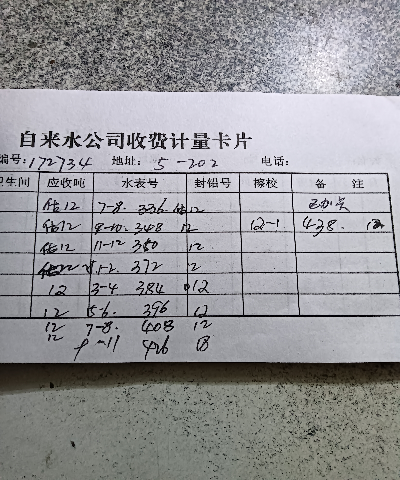 自来水公司收费计量卡片
编号:172734 地址: 5-202 电话:
卫生间 应收吨 水表号 封铅号 擦校 备 注
估12 7-8. 336 估12
估12 9-10. 348 12 12-1 438. 12
估12 11-12 360 12
估12 1-2. 372 12
12 3-4 384 12
12 5-6. 396 12
12 7-8. 408 12
12 9-11 426 18